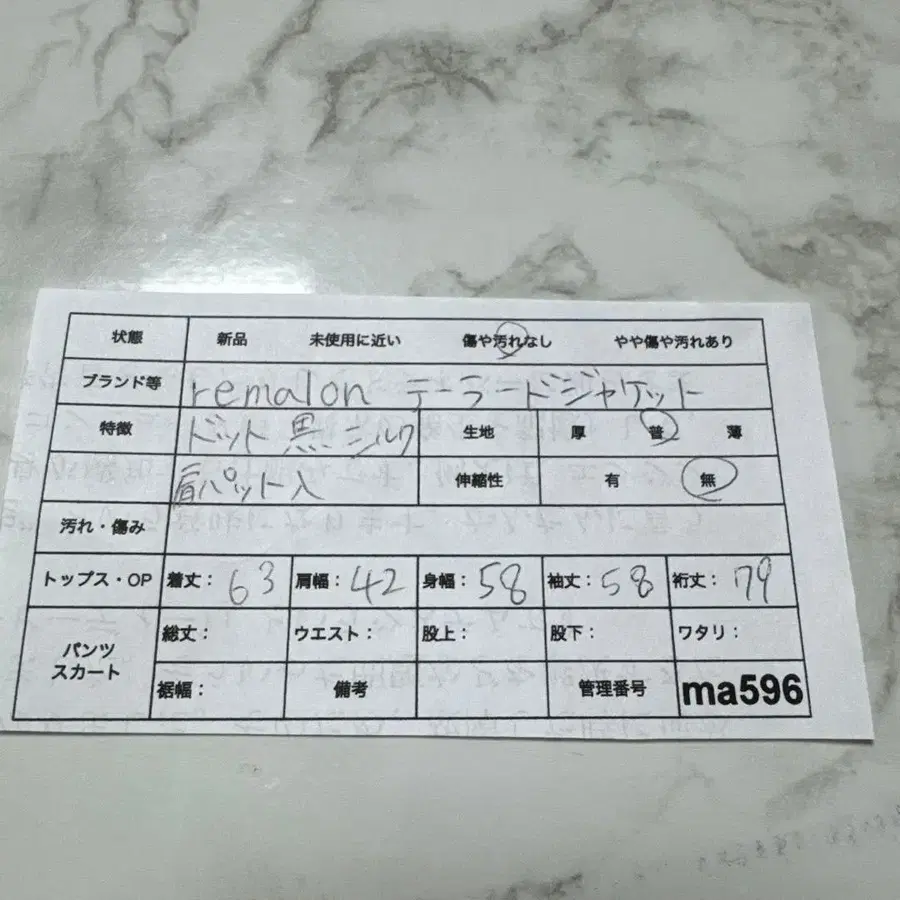 状態 新品 未使用に近い 傷や汚れなし やや傷や汚れあり
ブランド等 remalon テーラードジャケット
特徴 ドット 黒 シルク 生地 厚 普 薄
肩パット入 伸縮性 有 無
汚れ・傷み
トップス・OP 着丈：63 肩幅：42 身幅：58 袖丈：58 裄丈：79
パンツ スカート 総丈： ウエスト： 股上： 股下： ワタリ：
裾幅： 備考 管理番号 ma596